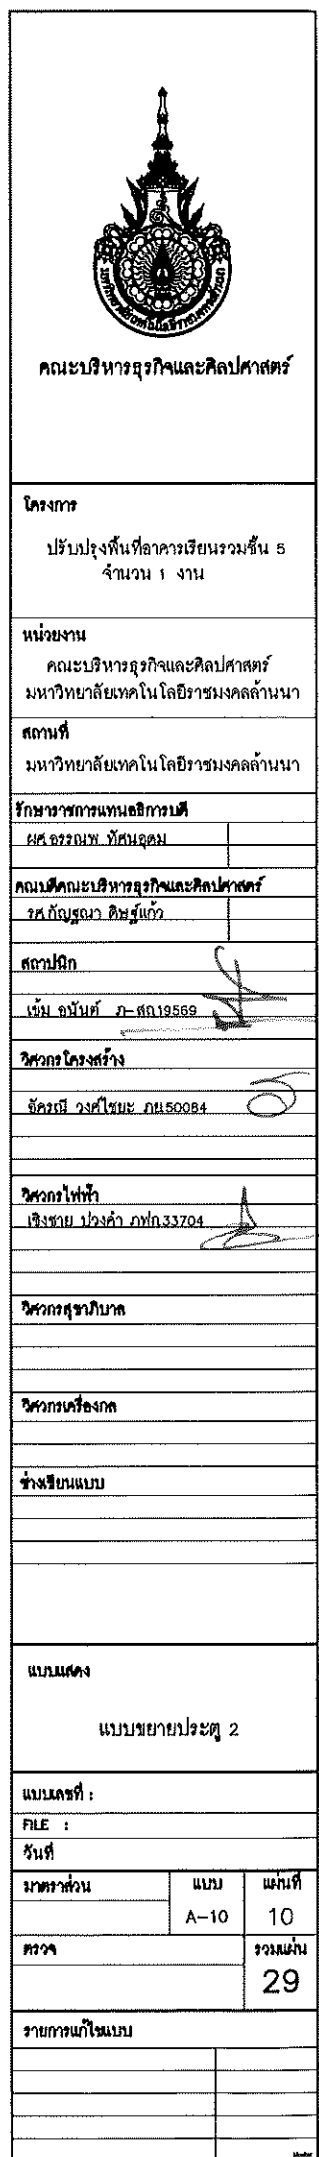 มหาวิทยาลัยเทคโนโลยีราชมงคลล้านนา
คณะบริหารธุรกิจและศิลปศาสตร์
โครงการ
ปรับปรุงพื้นที่อาคารเรียนรวมชั้น 5
จำนวน 1 งาน
หน่วยงาน
คณะบริหารธุรกิจและศิลปศาสตร์
มหาวิทยาลัยเทคโนโลยีราชมงคลล้านนา
สถานที่
มหาวิทยาลัยเทคโนโลยีราชมงคลล้านนา
รักษาราชการแทนอธิการบดี
ผศ.อรรณพ ทัศนอุดม
คณบดีคณะบริหารธุรกิจและศิลปศาสตร์
รศ.กัญฐณา ดิษฐ์แก้ว
สถาปนิก
เข้ม อนันต์ ภ-สถ.19569
วิศวกรโครงสร้าง
อัครณี วงศ์ไชยะ ภย.50084
วิศวกรไฟฟ้า
เชิงชาย ปวงคำ ภฟก.33704
วิศวกรสุขาภิบาล
วิศวกรเครื่องกล
ช่างเขียนแบบ
แบบแสดง
แบบขยายประตู 2
แบบเลขที่ :
FILE :
วันที่
มาตราส่วน แบบ แผ่นที่
A-10 10
ตรวจ รวมแผ่น
29
รายการแก้ไขแบบ